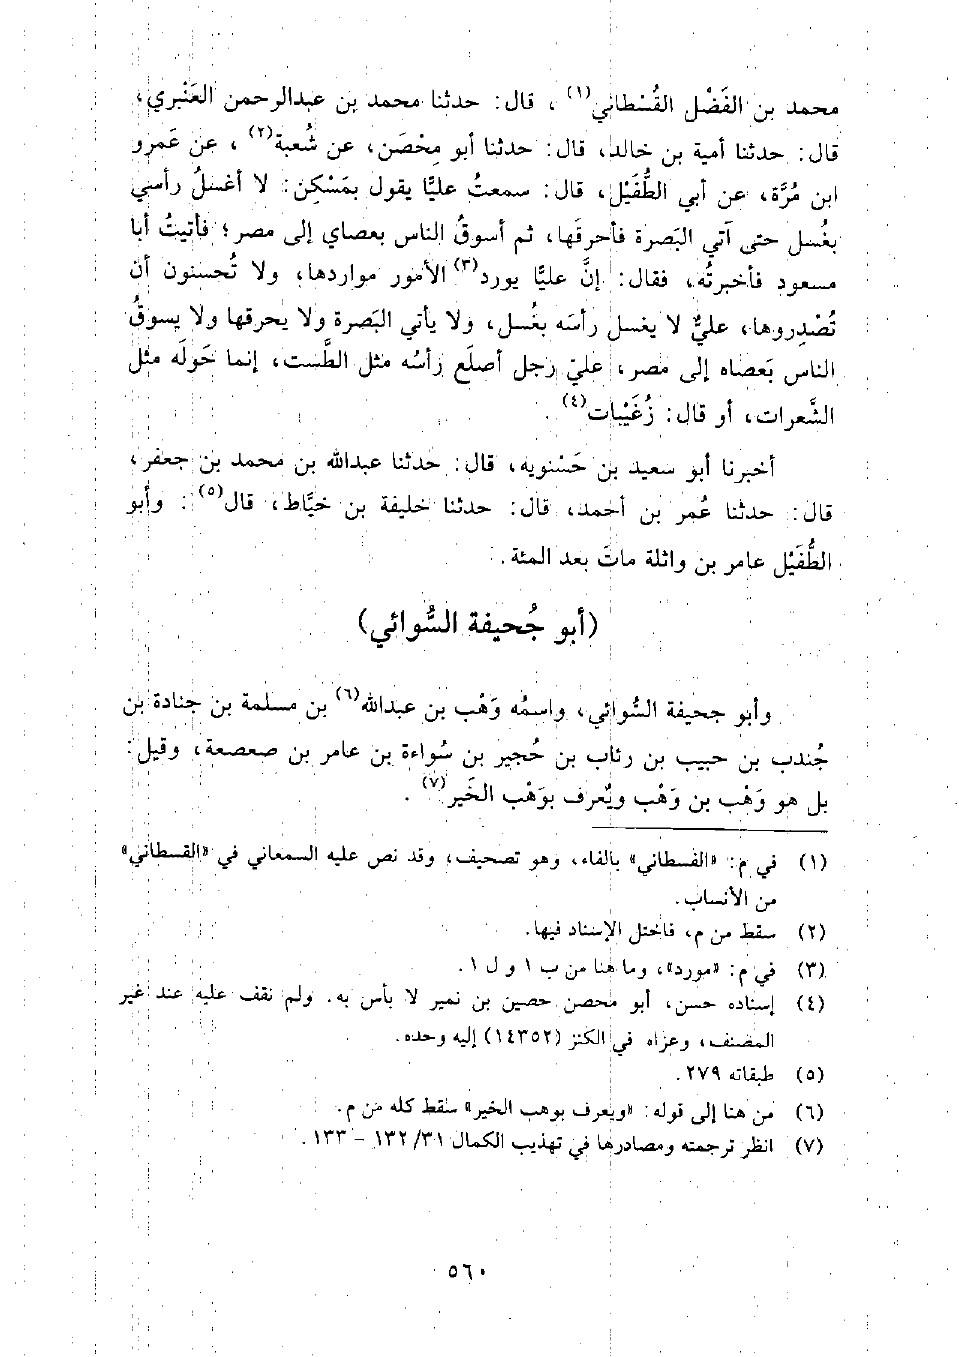 محمد بن الفَضْل القُسْطاني(١)، قال: حدثنا محمد بن عبدالرحمن العَنْبري،
قال: حدثنا أمية بن خالد، قال: حدثنا أبو مِحْصَن، عن شُعبة(٢)، عن عَمرو
ابن مُرَّة، عن أبي الطُّفَيْل، قال: سمعتُ عليًّا يقول بمَسْكِن: لا أغسلُ رأسي
بغُسل حتى آتي البَصرة فأحرقَها، ثم أسوقُ الناس بعصاي إلى مصر؛ فأتيتُ أبا
مسعود فأخبرتُه، فقال: إنَّ عليًّا يورد(٣) الأمور مواردها، ولا تُحسنون أن
تُصْدِروها، عليٌّ لا يغسل رأسَه بغُسل، ولا يأتي البَصرة ولا يحرقها ولا يسوقُ
الناس بَعصاه إلى مصر، عليّ رجل أصلَع رأسُه مثل الطَّست، إنما حَولَه مثل
الشَّعرات، أو قال: زُغَيْبات(٤).
أخبرنا أبو سعيد بن حَسْنويه، قال: حدثنا عبدالله بن محمد بن جعفر،
قال: حدثنا عُمر بن أحمد، قال: حدثنا خليفة بن خيَّاط، قال(٥): وأبو
الطُّفَيْل عامر بن واثلة ماتَ بعد المئة.
(أبو جُحيفة السُّوائي)
وأبو جحيفة السُّوائي، واسمُه وَهْب بن عبدالله(٦) بن مسلمة بن جنادة بن
جُندب بن حبيب بن رئاب بن حُجير بن سُواءة بن عامر بن صعصعة، وقيل:
بل هو وَهْب بن وَهْب ويُعرف بوَهْب الخَير(٧).
(١) في م: «الفسطاني» بالفاء، وهو تصحيف، وقد نص عليه السمعاني في «القسطاني»
من الأنساب.
(٢) سقط من م، فاختل الإسناد فيها.
(٣) في م: «مورد»، وما هنا من ب ١ و ل ١.
(٤) إسناده حسن، أبو محصن حصين بن نمير لا بأس به. ولم نقف عليه عند غير
المصنف، وعزاه في الكنز (١٤٣٥٢) إليه وحده.
(٥) طبقاته ٢٧٩.
(٦) من هنا إلى قوله: «ويعرف بوهب الخير» سقط كله من م.
(٧) انظر ترجمته ومصادرها في تهذيب الكمال ٣١/ ١٣٢ – ١٣٣.
٥٦٠